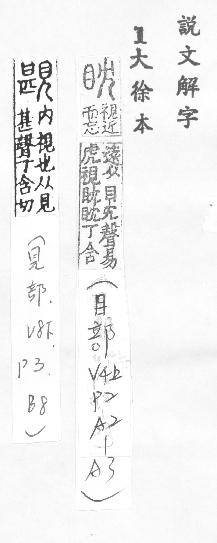 說文解字
1大徐本
眈 視近而志
遠从目冘聲易虎視眈眈丁含
(目部 V4上 P2 A2-A3)
內視也从見甚聲丁含切
(見部 V8下 P3 B8)